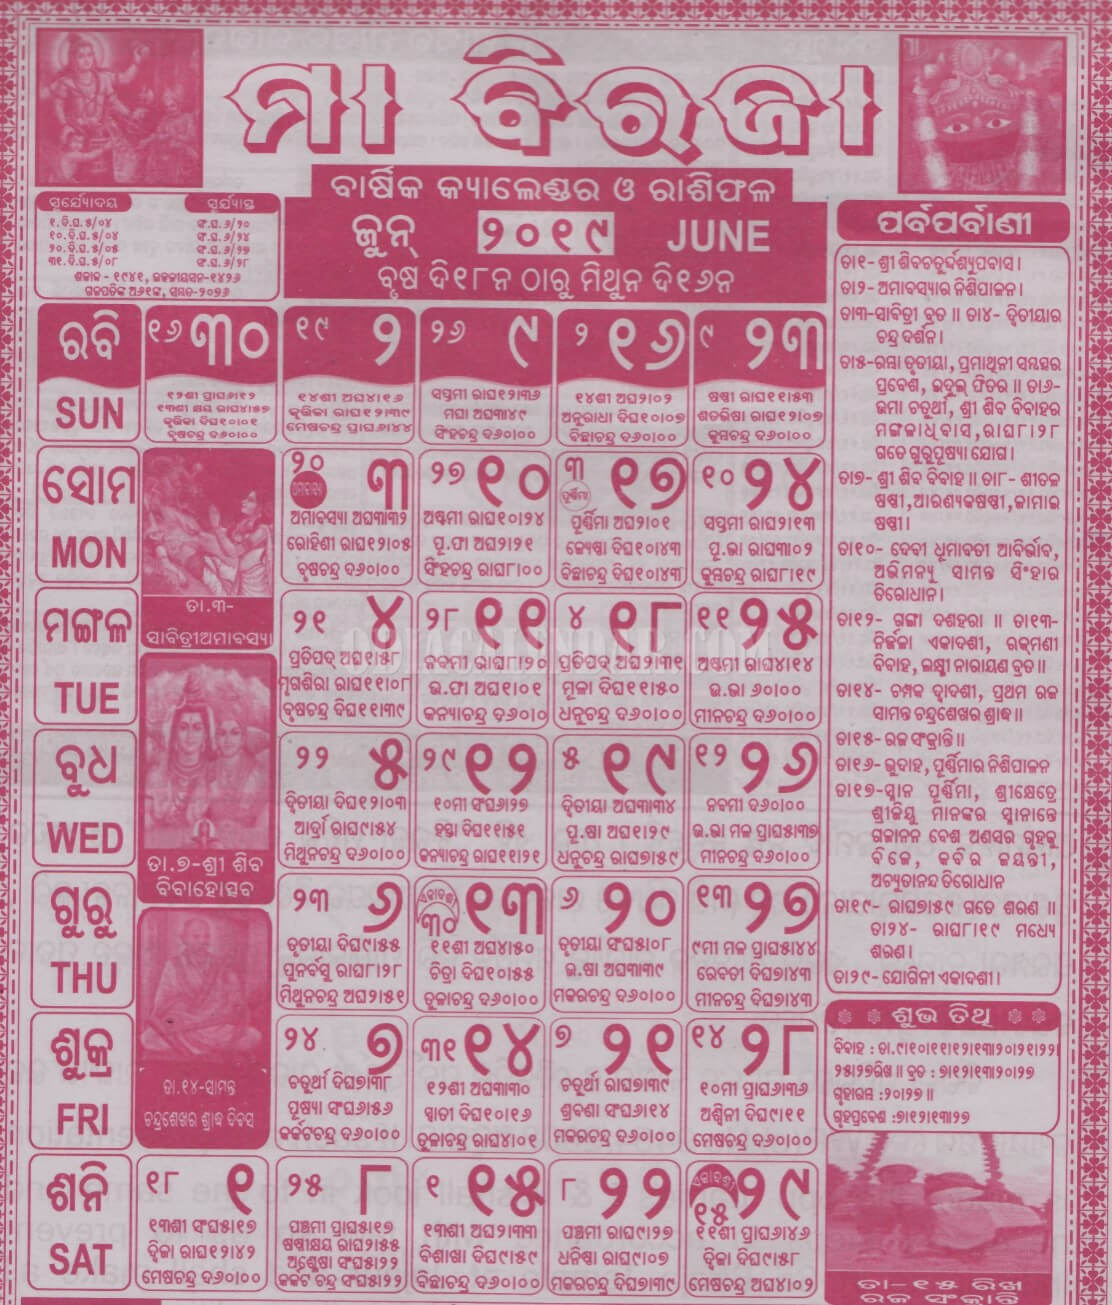 ମା ବିରଜା
ବାର୍ଷିକ କ୍ୟାଲେଣ୍ଡର ଓ ରାଶିଫଳ
ଜୁନ୍ ୨୦୧୯ JUNE
ବୃଷ ଦି୧୮ନ ଠାରୁ ମିଥୁନ ଦି୧୬ନ
ସୂର୍ଯ୍ୟୋଦୟ ସୂର୍ଯ୍ୟାସ୍ତ
୧.ଦି.ଘ.୫/୦୪ ସଂ.ଘ.୬/୨୦
୧୦.ଦି.ଘ.୫/୦୪ ସଂ.ଘ.୬/୨୪
୨୦.ଦି.ଘ.୫/୦୫ ସଂ.ଘ.୬/୨୭
୩୧.ଦି.ଘ.୫/୦୮ ସଂ.ଘ.୬/୨୮
ଶକାବ୍ଦ - ୧୯୪୧, ଉତ୍କଳୀୟସନ-୧୪୨୬
ଗଜପତିଙ୍କ ଅ୬୧ଙ୍କ, ସମ୍ବତ-୨୦୭୬
ରବି
SUN
୧୬ ୩୦
୧୨ଶୀ ପ୍ରାଘ୬।୧୨
୧୩ଶୀ କ୍ଷୟ ରାଘ୪।୫୭
କୃତ୍ତିକା ଦିଘ୧୦।୦୧
ବୃଷଚନ୍ଦ୍ର ଦ୬୦।୦୦
୧୯ ୨
୧୪ଶୀ ଅଘ୪।୧୬
କୃତ୍ତିକା ରାଘ୧୨।୩୯
ମେଷଚନ୍ଦ୍ର ପ୍ରାଘ୬।୪୪
୨୬ ୯
ସପ୍ତମୀ ରାଘ୧୨।୩୬
ମଘା ଅଘ୩।୪୯
ସିଂହଚନ୍ଦ୍ର ଦ୬୦।୦୦
୨ ୧୬
୧୪ଶୀ ଅଘ୨।୦୨
ଅନୁରାଧା ଦିଘ୧୦।୦୭
ବିଛାଚନ୍ଦ୍ର ଦ୬୦।୦୦
୯ ୨୩
ଷଷ୍ଠୀ ରାଘ୧୧।୫୩
ଶତଭିଷା ରାଘ୧୨।୦୭
କୁମ୍ଭଚନ୍ଦ୍ର ଦ୬୦।୦୦
ସୋମ
MON
ତା.୩-
ସାବିତ୍ରୀଅମାବାସ୍ୟା
୨୦ ୩
ଅମାବାସ୍ୟା ଅଘ୩।୩୨
ରୋହିଣୀ ରାଘ୧୨।୦୫
ବୃଷଚନ୍ଦ୍ର ଦ୬୦।୦୦
୨୭ ୧୦
ଅଷ୍ଟମୀ ରାଘ୧୦।୨୪
ପୂ.ଫା ଅଘ୨।୨୧
ସିଂହଚନ୍ଦ୍ର ରାଘ୮।୦୦
୩ ୧୭
ପୂର୍ଣ୍ଣିମା
ପୂର୍ଣ୍ଣିମା ଅଘ୨।୦୧
ଜ୍ୟେଷ୍ଠା ଦିଘ୧୦।୪୩
ବିଛାଚନ୍ଦ୍ର ଦିଘ୧୦।୪୩
୧୦ ୨୪
ସପ୍ତମୀ ରାଘ୨।୧୩
ପୂ.ଭା ରାଘ୩।୦୨
କୁମ୍ଭଚନ୍ଦ୍ର ରାଘ୮।୧୯
ମଙ୍ଗଳ
TUE
୨୧ ୪
ପ୍ରତିପଦ୍ ଅଘ୧।୫୮
ମୃଗଶିରା ରାଘ୧୧।୦୮
ବୃଷଚନ୍ଦ୍ର ଦିଘ୧୧।୩୯
୨୮ ୧୧
ନବମୀ ରାଘ୮।୨୦
ଉ.ଫା ଅଘ୧।୦୧
କନ୍ୟାଚନ୍ଦ୍ର ଦ୬୦।୦
୪ ୧୮
ପ୍ରତିପଦ୍ ଅଘ୨।୩୧
ମୂଳା ଦିଘ୧୧।୫୦
ଧନୁଚନ୍ଦ୍ର ଦ୬୦।୦୦
୧୧ ୨୫
ଅଷ୍ଟମୀ ରାଘ୪।୧୪
ଉ.ଭା ୬୦।୦୦
ମୀନଚନ୍ଦ୍ର ଦ୬୦।୦୦
ODIACALENDAR.COM
ବୁଧ
WED
ତା.୭-ଶ୍ରୀ ଶିବ
ବିବାହୋତ୍ସବ
୨୨ ୫
ଦ୍ବିତୀୟା ଦିଘ୧୨।୦୩
ଆର୍ଦ୍ରା ରାଘ୯।୫୪
ମିଥୁନଚନ୍ଦ୍ର ଦ୬୦।୦୦
୨୯ ୧୨
୧୦ମୀ ସଂଘ୬।୨୭
ହସ୍ତା ଦିଘ୧୧।୫୧
କନ୍ୟାଚନ୍ଦ୍ର ରାଘ୧୧।୨୧
୫ ୧୯
ଦ୍ବିତୀୟା ଅଘ୩।୩୪
ପୂ.ଷା ଅଘ୧।୨୯
ଧନୁଚନ୍ଦ୍ର ରାଘ୭।୫୯
୧୨ ୨୬
ନବମୀ ଦ୬୦।୦୦
ଉ.ଭା ମଳ ପ୍ରାଘ୫।୩୭
ମୀନଚନ୍ଦ୍ର ଦ୬୦।୦୦
ଗୁରୁ
THU
୨୩ ୬
ତୃତୀୟା ଦିଘ୯।୫୫
ପୁନର୍ବସୁ ରାଘ୮।୨୮
ମିଥୁନଚନ୍ଦ୍ର ଅଘ୨।୫୧
୩୦ ୧୩
୧୧ଶୀ ଅଘ୪।୫୦
ଚିତ୍ରା ଦିଘ୧୦।୫୫
ତୁଳାଚନ୍ଦ୍ର ଦ୬୦।୦୦
୬ ୨୦
ତୃତୀୟା ସଂଘ୫।୦୮
ଉ.ଷା ଅଘ୩।୩୯
ମକରଚନ୍ଦ୍ର ଦ୬୦।୦୦
୧୩ ୨୭
୯ମୀ ମଳ ପ୍ରାଘ୫।୪୪
ରେବତୀ ଦିଘ୭।୪୩
ମୀନଚନ୍ଦ୍ର ଦିଘ୭।୪୩
ଶୁକ୍ର
FRI
ତା.୧୪-ସାମନ୍ତ
ଚନ୍ଦ୍ରଶେଖର ଶ୍ରାଦ୍ଧ ଦିବସ
୨୪ ୭
ଚତୁର୍ଥୀ ଦିଘ୭।୩୮
ପୁଷ୍ୟା ସଂଘ୬।୫୬
କର୍କଟଚନ୍ଦ୍ର ଦ୬୦।୦୦
୩୧ ୧୪
୧୨ଶୀ ଅଘ୩।୩୦
ସ୍ବାତୀ ଦିଘ୧୦।୧୬
ତୁଳାଚନ୍ଦ୍ର ରାଘ୪।୦୧
୭ ୨୧
ଚତୁର୍ଥୀ ରାଘ୭।୩୯
ଶ୍ରବଣା ସଂଘ୬।୧୪
ମକରଚନ୍ଦ୍ର ଦ୬୦।୦୦
୧୪ ୨୮
୧୦ମୀ ପ୍ରାଘ୬।୩୬
ଅଶ୍ବିନୀ ଦିଘ୯।୧୧
ମେଷଚନ୍ଦ୍ର ଦ୬୦।୦୦
ଶନି
SAT
୧୮ ୧
୧୩ଶୀ ସଂଘ୫।୧୭
ଦ୍ବିଜା ରାଘ୧୨।୪୨
ମେଷଚନ୍ଦ୍ର ଦ୬୦।୦୦
୨୫ ୮
ପଞ୍ଚମୀ ପ୍ରାଘ୫।୧୭
ଷଷ୍ଠୀକ୍ଷୟ ରାଘ୨।୫୫
ଅଶ୍ଳେଷା ସଂଘ୫।୨୨
କର୍କଟ ଚନ୍ଦ୍ର ସଂଘ୫।୨୨
୧ ୧୫
୧୩ଶୀ ଅଘ୨।୩୩
ବିଶାଖା ଦିଘ୯।୫୯
ବିଛାଚନ୍ଦ୍ର ଦ୬୦।୦୦
୮ ୨୨
ପଞ୍ଚମୀ ରାଘ୯।୨୭
ଧନିଷ୍ଠା ରାଘ୯।୦୭
ମକରଚନ୍ଦ୍ର ଦିଘ୭।୩୯
୧୫ ୨୯
୧୧ଶୀ ପ୍ରାଘ୬।୪୬
ଦ୍ବିଜା ଦିଘ୯।୫୮
ମେଷଚନ୍ଦ୍ର ଅଘ୪।୦୨
ପର୍ବପର୍ବାଣୀ
ତା୧- ଶ୍ରୀ ଶିବଚତୁର୍ଦ୍ଦଶ୍ୟୁପବାସ।
ତା୨- ଅମାବାସ୍ୟାର ନିଶିପାଳନ।
ତା୩-ସାବିତ୍ରୀ ବ୍ରତ ॥ ତା୪- ଦ୍ବିତୀୟାର
ଚନ୍ଦ୍ର ଦର୍ଶନ।
ତା୫-ରମ୍ଭା ତୃତୀୟା, ପ୍ରମାଥିନୀ ସମ୍ବତ୍ସର
ପ୍ରବେଶ, ଇଦୁଲ୍ ଫିତର ॥ ତା୬-
ଉମା ଚତୁର୍ଥୀ, ଶ୍ରୀ ଶିବ ବିବାହର
ମଙ୍ଗଳାଧିବାସ, ରାଘ୮।୨୮
ଗତେ ଗୁରୁପୁଷ୍ୟା ଯୋଗ।
ତା୭- ଶ୍ରୀ ଶିବ ବିବାହ ॥ ତା୮- ଶୀତଳ
ଷଷ୍ଠୀ, ଆରଣ୍ୟକଷଷ୍ଠୀ, ଜାମାଇ
ଷଷ୍ଠୀ।
ତା୧୦- ଦେବୀ ଧୂମାବତୀ ଆବିର୍ଭାବ,
ଅଭିମନ୍ୟୁ ସାମନ୍ତ ସିଂହାର
ତିରୋଧାନ।
ତା୧୨- ଗଙ୍ଗା ଦଶହରା ॥ ତା୧୩-
ନିର୍ଜଳା ଏକାଦଶୀ, ରୁକ୍ମଣୀ
ବିବାହ, ଲକ୍ଷ୍ମୀନାରାୟଣ ବ୍ରତ॥
ତା୧୪- ଚମ୍ପକ ଦ୍ବାଦଶୀ, ପ୍ରଥମ ରଜ
ସାମନ୍ତ ଚନ୍ଦ୍ରଶେଖର ଶ୍ରାଦ୍ଧ॥
ତା୧୫- ରଜ ସଂକ୍ରାନ୍ତି॥
ତା୧୬- ଭୂଦାହ, ପୂର୍ଣ୍ଣିମାର ନିଶିପାଳନ
ତା୧୭-ସ୍ନାନ ପୂର୍ଣ୍ଣିମା, ଶ୍ରୀକ୍ଷେତ୍ରେ
ଶ୍ରୀଜିୟୁ ମାନଙ୍କର ସ୍ନାନାନ୍ତେ
ଗଜାନନ ବେଶ ଅଣସର ଗୃହକୁ
ବିଜେ, କବିର ଜୟନ୍ତୀ,
ଅଚ୍ୟୁତାନନ୍ଦ ତିରୋଧାନ
ତା୧୯- ରାଘ୭।୫୯ ଗତେ ଶରଣ ॥
ତା୨୪- ରାଘ୮।୧୯ ମଧ୍ୟେ
ଶରଣ।
ତା୨୯- ଯୋଗିନୀ ଏକାଦଶୀ।
ଶୁଭ ତିଥି
ବିବାହ : ତା.୯।୧୦।୧୧।୧୨।୧୩।୨୦।୨୧।୨୨।
୨୫।୨୭ରିଖ॥ ବ୍ରତ : ୭।୧୨।୧୩।୨୦।୨୭
ଗୃହାରମ୍ଭ :୨୦।୨୭॥
ଗୃହପ୍ରବେଶ :୭।୧୨।୧୩।୨୭
ତା-୧୫ ରିଖ
ରଜ ସଂକ୍ରାନ୍ତି